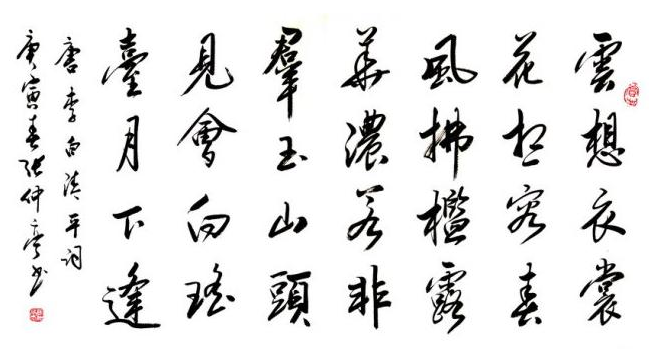 雲想衣裳
花想容春
風拂檻露
華濃若非
羣玉山頭
見會向瑤
臺月下逢
唐李白清平词
庚寅春张仲亭书